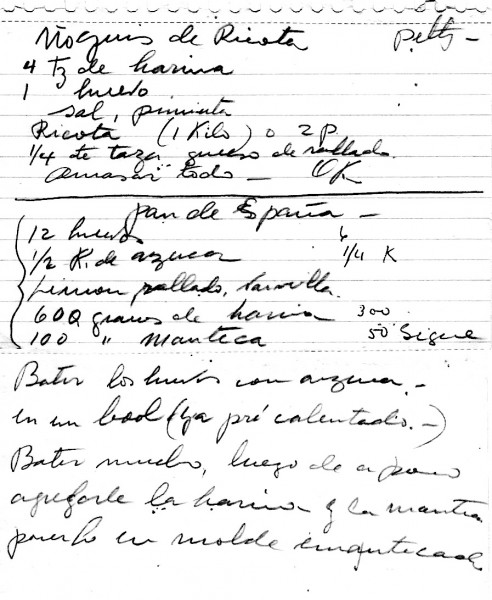 Ñoquis de Ricota Petty -
4 Tz de harina
1 huevo
sal, pimienta
Ricota (1 Kilo) o 2 p.
1/4 de taza queso de rallado.
amasar todo - OK
Pan de España -
12 huevos 6
1/2 K. de azucar 1/4 K
Limon rallado, vainilla.
600 gramos de harina 300
100 " manteca 50 Sigue
Batir los huevos con azucar -
en un bool (ya pré calentado. -)
Batir mucho, luego de a poco
agregarle la harina y la manteca
ponerlo en molde enmantecado